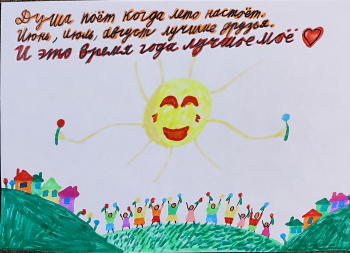 Душа поёт когда лето настоёт.
Июнь, июль, август лучшие друзья.
И это время года лучшое моё